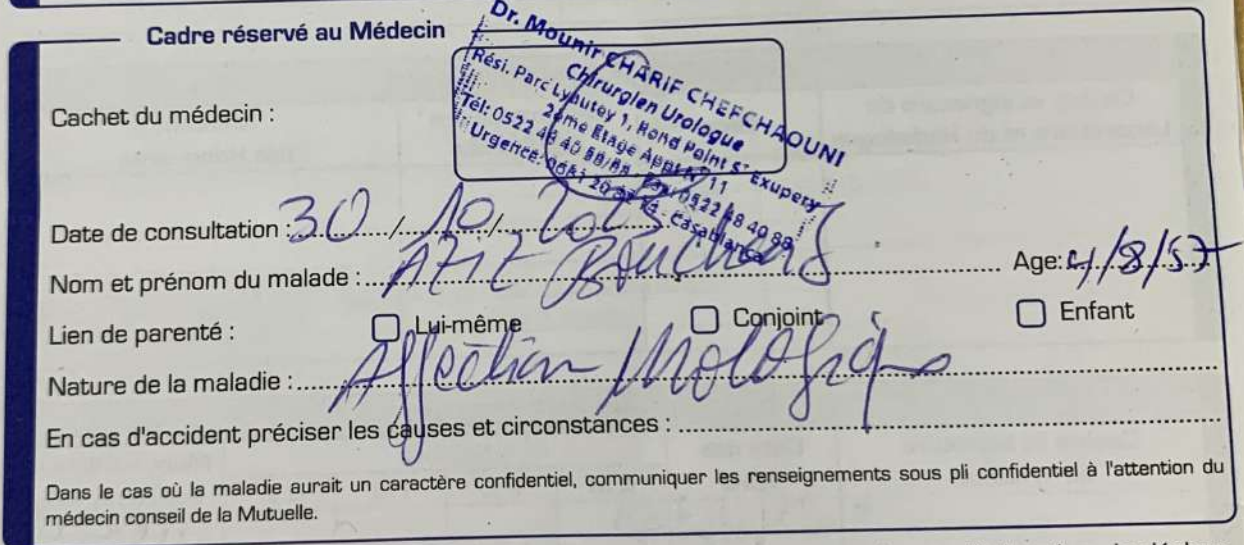 Cadre réservé au Médecin
Dr. Mounir CHARIF CHEFCHAOUNI
Chirurgien Urologue
Rési. Parc Lyautey 1, Rond Point St Exupery
2ème Etage Appt N° 11
Tél: 0522 48 40 88/89 0522 48 40 88
Urgence: Casablanca
Cachet du médecin :
Date de consultation : 30/10/2023
Nom et prénom du malade : AZIZ Age: 4/8/57
Lien de parenté : Lui-même Conjoint Enfant
Nature de la maladie : Affection Urologique
En cas d'accident préciser les causes et circonstances :
Dans le cas où la maladie aurait un caractère confidentiel, communiquer les renseignements sous pli confidentiel à l'attention du
médecin conseil de la Mutuelle.